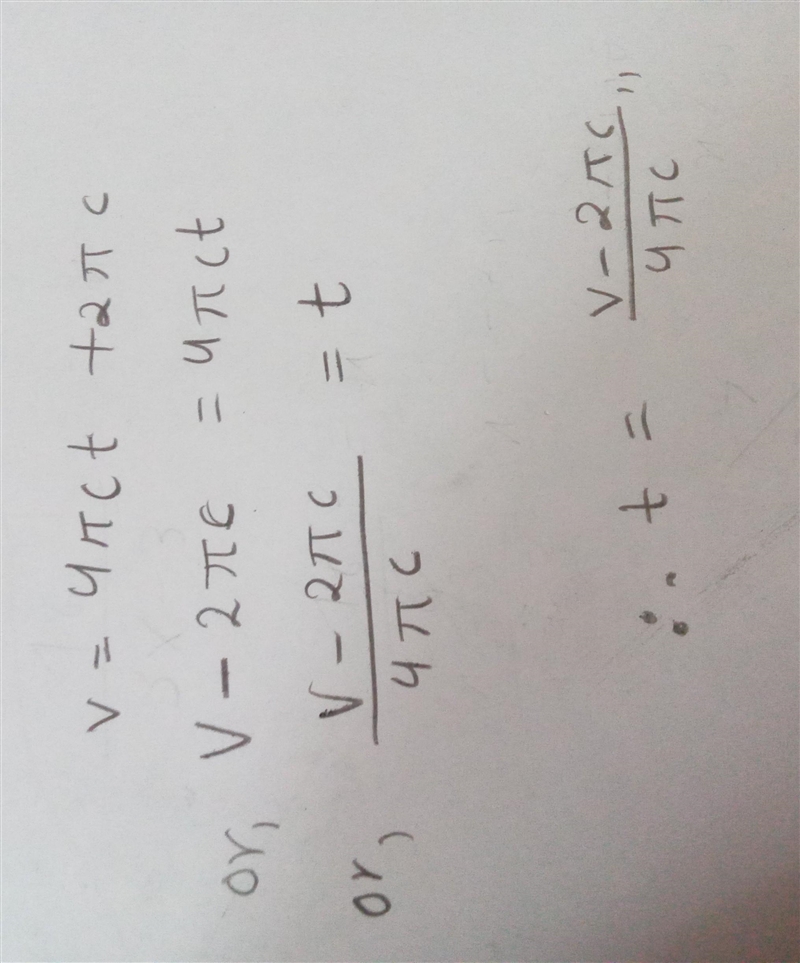 v = 4πct + 2πc
or, v - 2πc = 4πct
or, \frac{v - 2πc}{4πc} = t
∴ t = \frac{v - 2πc}{4πc} ,,